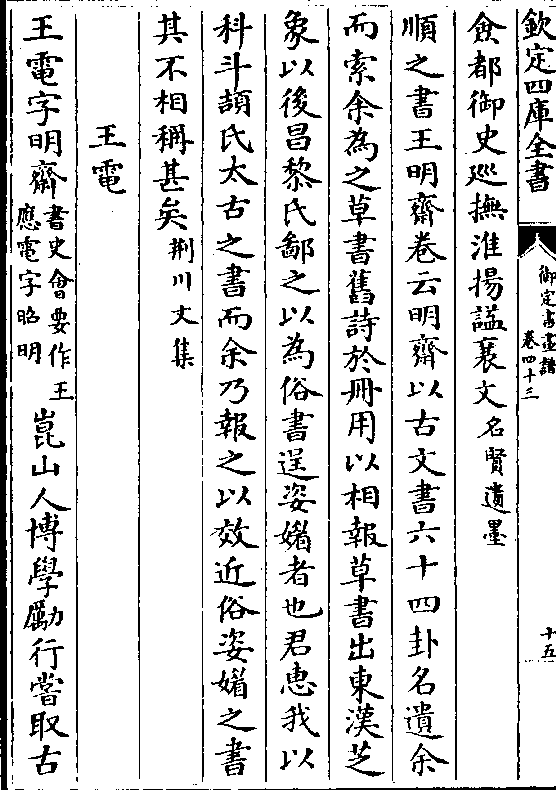 欽定四庫全書
御定書畫譜
卷四十三
十五
僉都御史巡撫淮揚謚襄文名賢遺墨
順之書王明齋卷云明齋以古文書六十四卦名遺余
而索余為之草書舊詩於冊用以相報草書出東漢芝
象以後昌黎氏鄙之以為俗書逞姿媚者也君惠我以
科斗頡氏太古之書而余乃報之以效近俗姿媚之書
其不相稱甚矣荆川文集
王電
王電字明齋書史會要作王應電字昭明崑山人博學勵行嘗取古